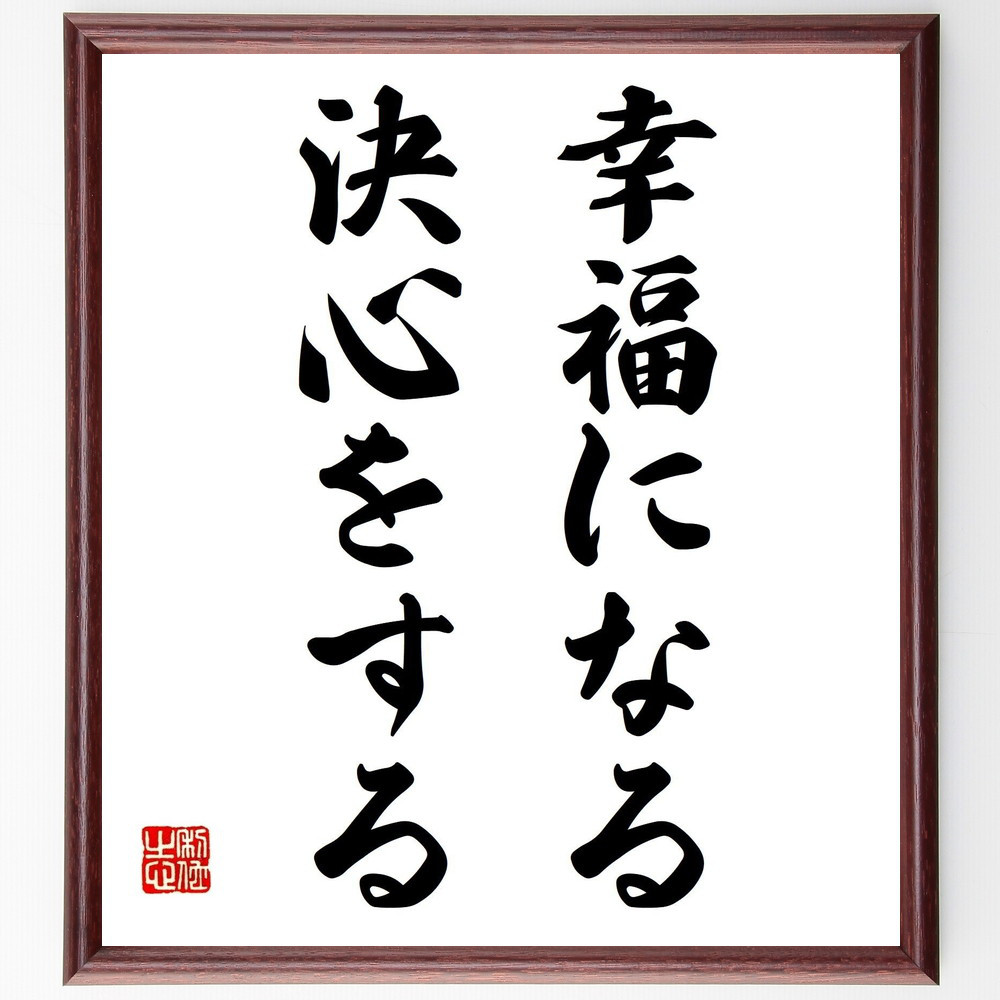 幸福になる
決心をする